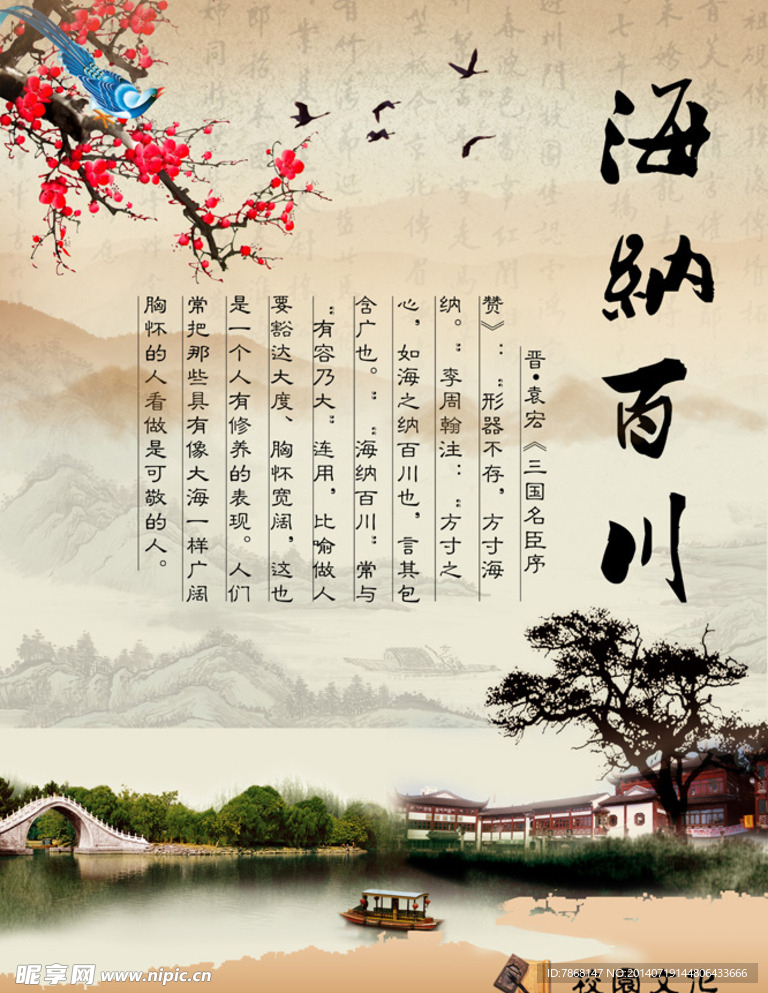 海納百川
晋·袁宏《三国名臣序
赞》：“形器不存，方寸海
纳。”李周翰注：“方寸之
心，如海之纳百川也，言其包
含广也。”“海纳百川”常与
“有容乃大”连用，比喻做人
要豁达大度、胸怀宽阔，这也
是一个人有修养的表现。人们
常把那些具有像大海一样广阔
胸怀的人看做是可敬的人。
校園文化
昵享网 www.nipic.cn
ID:7868147 NO:20140719144806433666